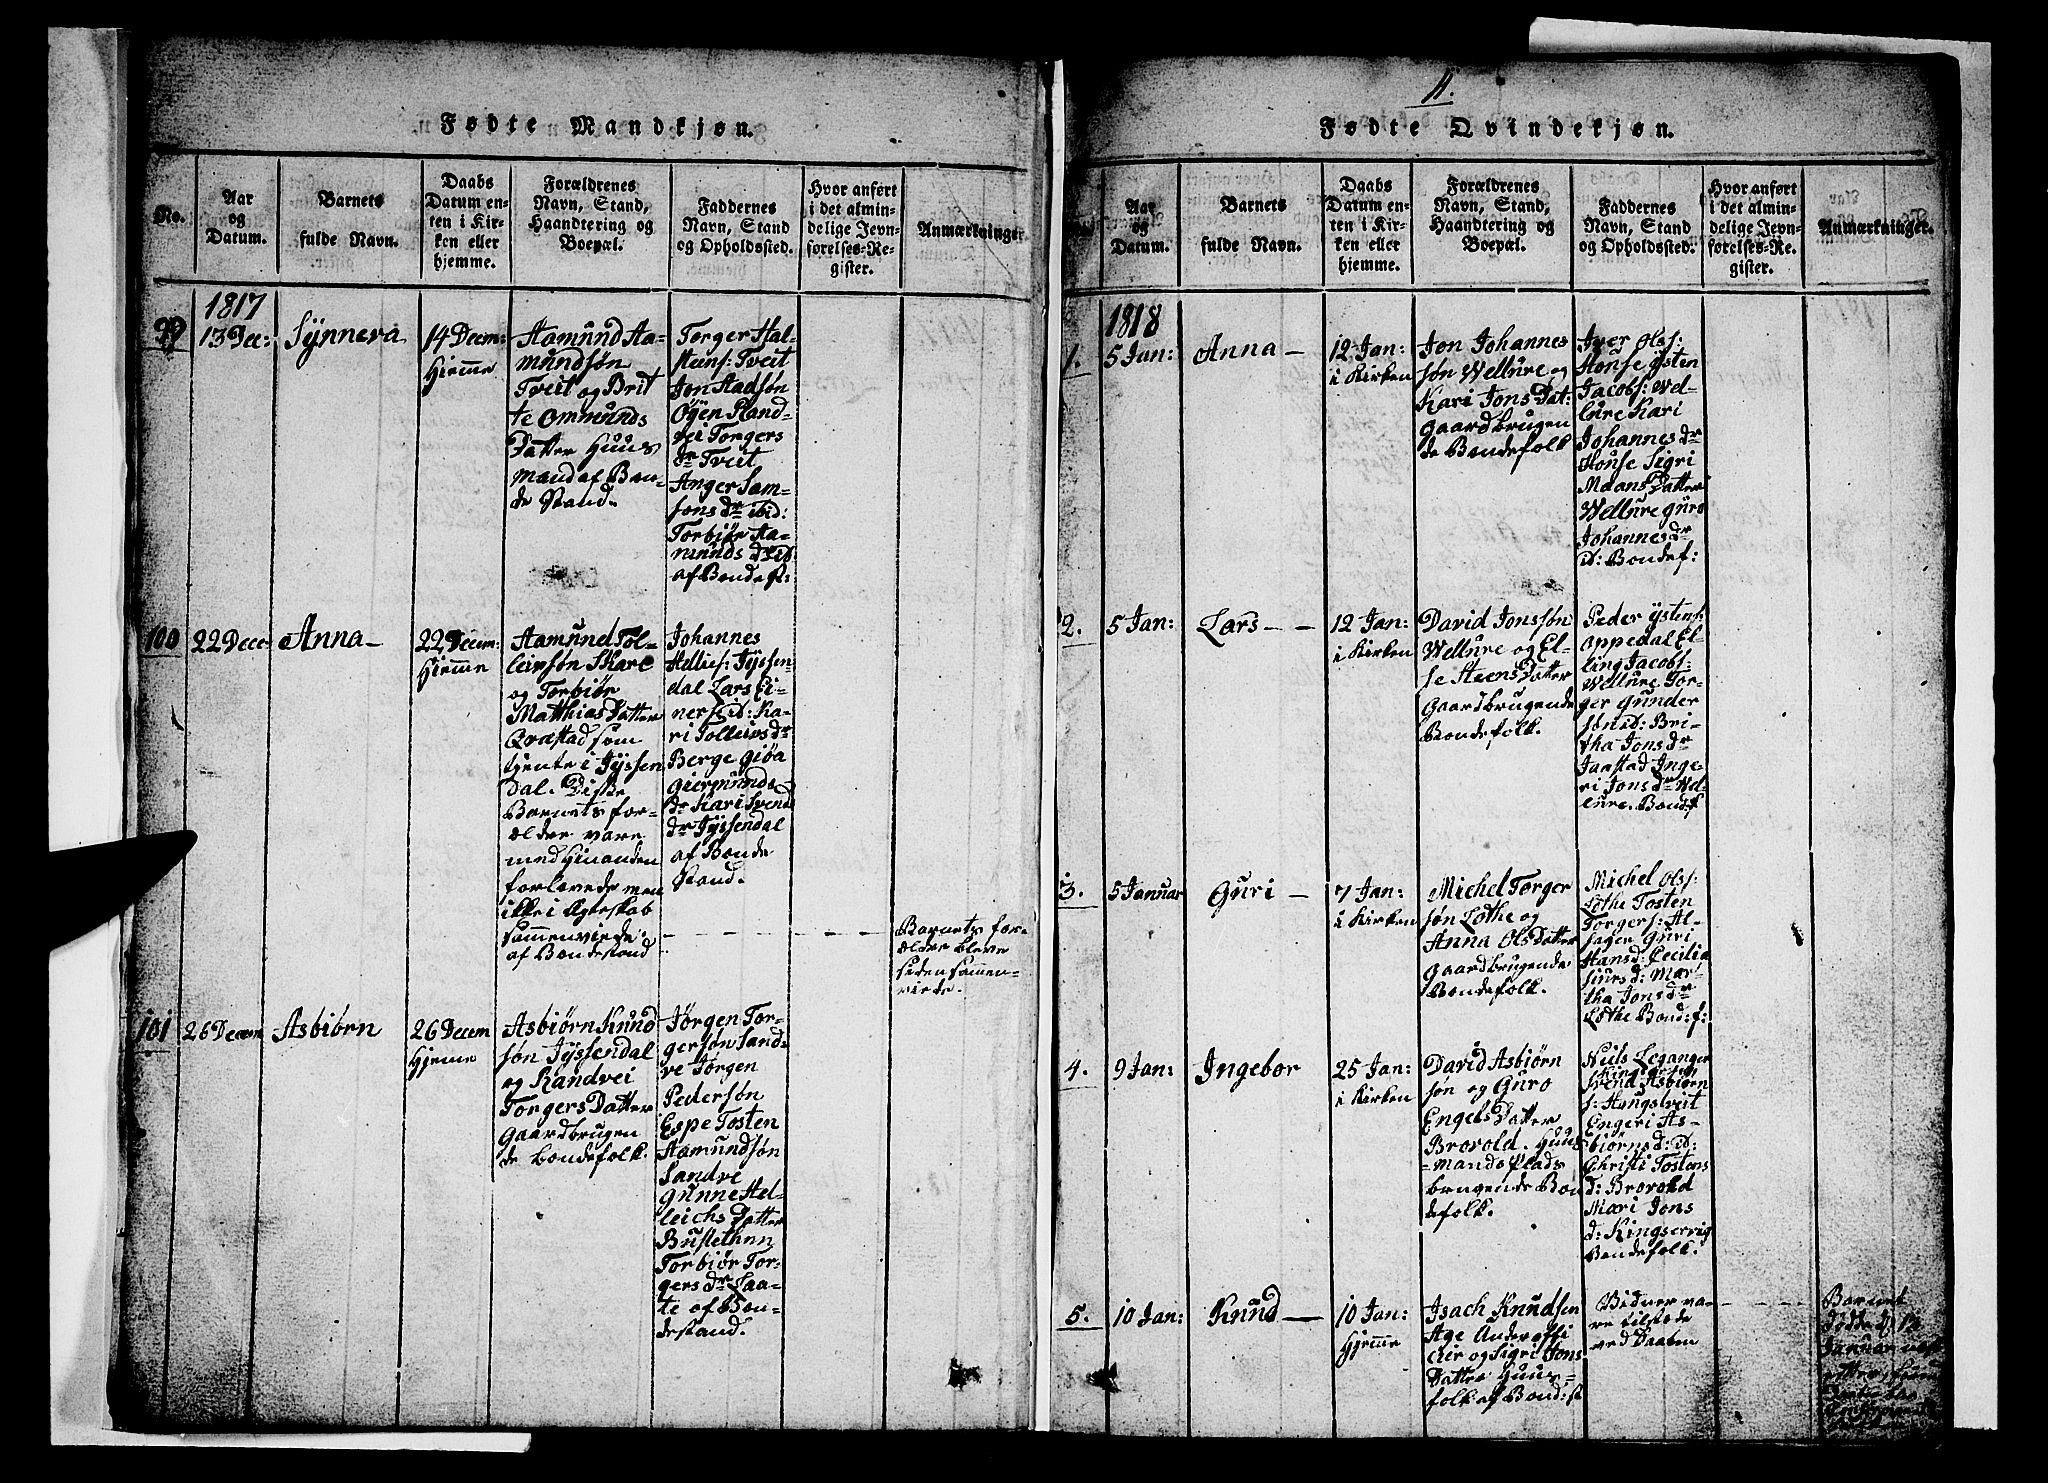 Fødte Mandkjøn.
No.
Aar
og
Datum.
Barnets
fulde Navn.
Daabs
Datum en-
ten i Kir-
ken eller
hjemme.
Forældrenes
Navn, Stand,
Haandtering og
Boepæl.
Faddernes
Navn, Stand
og Opholdssted.
Hvor anført
i det almin-
delige Jevn-
førelses-Re-
gister.
Anmærkninger.
1817
99
13 Dec:
Synneva
14 Decem:
Hiemme
Aamund Aa-
mundsøn
Tveit og Brit
te Ommunds
Datter Huus
mand af Bon-
de Stand.
Torger Hal-
stens: Tveit
Jon Aadsøn
Øyen Rand-
vei Torgers
dr Tveit
Anger Sam-
sons dr ibid:
Torbiør Aa-
munds d: ib:
af Bondest:
100
22 Dece:
Anna -
22 Decem:
Hiemme
Aamund Tol-
leivsøn Skare
og Torbiør
Matthias Datter
Qvæstad som
tjente i Tyssen
dal. Disse
Barnets for-
ældre vare
med hinanden
forlovede men
ikke i Ægteskab
sammenviede.
af Bondestand
Johannes
Hellies: Tyssen-
dal Lars Ei-
ners: ibid: Ka-
ri Tolleivs dr
Berge Giøa
Giermunds
dr Kari Svend
dr Tyssendal
af Bonde
Stand.
Barnets for-
ældre bleve
siden sammen-
viede.
101
26 Decem
Asbiørn
26 Decem
Hjemme
Asbiørn Knud
søn Tyssendal
og Randvei
Torgers Datter
Gaardbrugen
de bondefolk.
Jørgen Tor-
gersøn Sand-
ve Jørgen
Pedersøn
Espe Tosten
Aamundsøn
Sandve
Gunne Hel-
leichs Datter
Bustethun
Torbiør Tor-
gers dr Laa-
te af Bon-
destand.
11.
Fødte Qvindekjøn.
Aar
og
Datum.
Barnets
fulde Navn.
Daabs
Datum en-
ten i Kir-
ken eller
hjemme.
Forældrenes
Navn, Stand,
Haandtering og
Boepæl.
Faddernes
Navn, Stand
og Opholdssted.
Hvor anført
i det almin-
delige Jevn-
førelses-Re-
gister.
Anmærkninger.
1818
1.
5 Jan:
Anna -
12 Jan:
i Kirken
Jon Johannes
søn Wellure og
Kari Jons Dat:
Gaardbrugen
de Bondefolk
Iver Ols:
House Ysten
Jacobs: Wel-
lure Kari
Johannes dr
House Sigri
Maans Datter
Wellure Guro
Johannes dr
id: Bondef:
2.
5 Jan:
Lars - -
12 Jan:
i Kirken
David Jonssøn
Wellure og El-
se Steens Datter
Gaardbrugende
Bondefolk.
Peder Ystens:
Oppedal El-
ling Jacobs:
Wellure Tor-
ger Gunder
søn id: Bri-
tha Jons dr
Jaastad Inge-
ri Jons dr Wel-
lure. Bondf
3.
5 Januar
Guri -
7 Jan:
i Kirken
Michel Torger
søn Lothe og
Anna Ols Datter
Gaardbrugende
Bondefolk.
Michel Ols:
Lothe Tosten
Torgers: Al-
sager Guri
Hans d: Cecilia
Siurs d: Mar-
tha Jons dr
Lothe Bond: f:
4.
9 Jan:
Ingebor
25 Jan:
i Kirken
David Asbiørn
søn og Guro
Engels Datter
Brovold. Huus
mands Plads
brugende Bon
defolk.
Niels Leganger
Kingservig
Svend Asbiørn
s: Haugstveit
Engeri As-
biørns d: id:
Christi Tostens
d: Brovold
Mari Jons
d: Kingservig
Bondefolk.
5.
10 Jan:
Knud -
10 Jan:
Hjemme
Isach Knudsen
Age Underoffi
cier og Sigri Jons
Datter Huus-
folk af Bond: st
Vidner va-
re tilstede
ved Daaben
Barnet
døde d 12
Januar